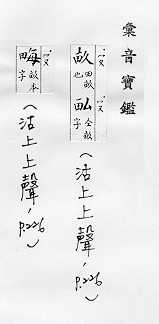 彙音寶鑑
畝 田畝也 畆 仝畝字
(沽上上聲, p.226)
畝本字
(沽上上聲, p.226)